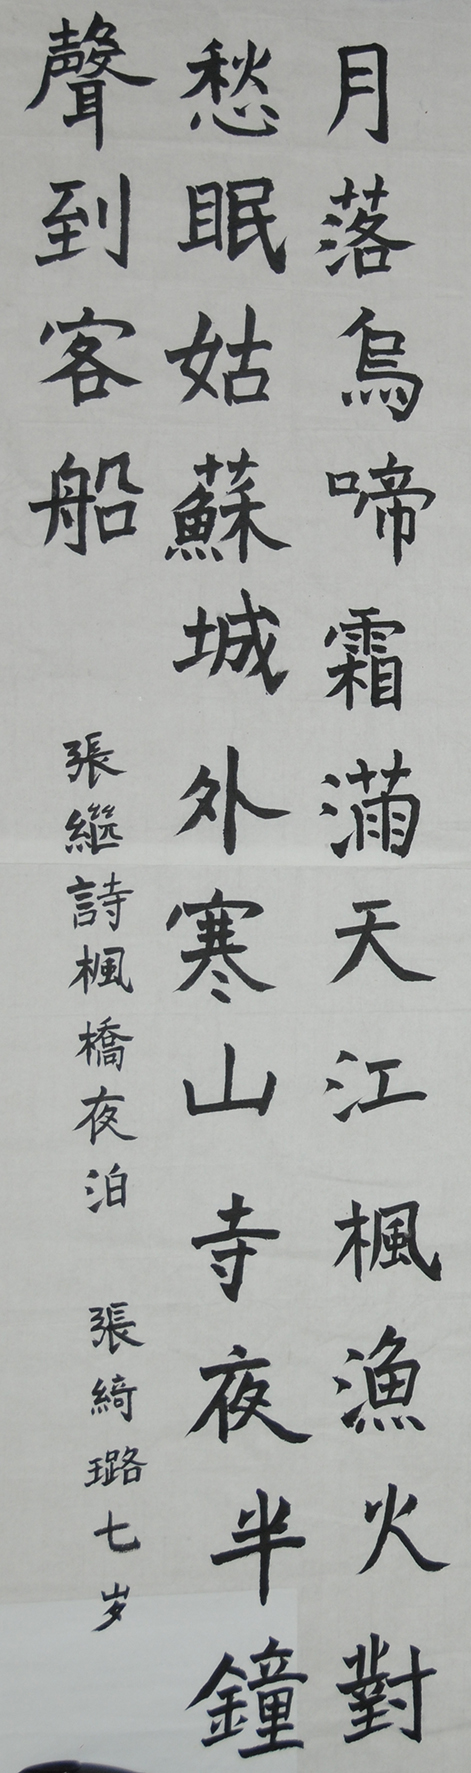 月落烏啼霜滿天江楓漁火對
愁眠姑蘇城外寒山寺夜半鐘
聲到客船
張繼詩楓橋夜泊 張綺璐七岁